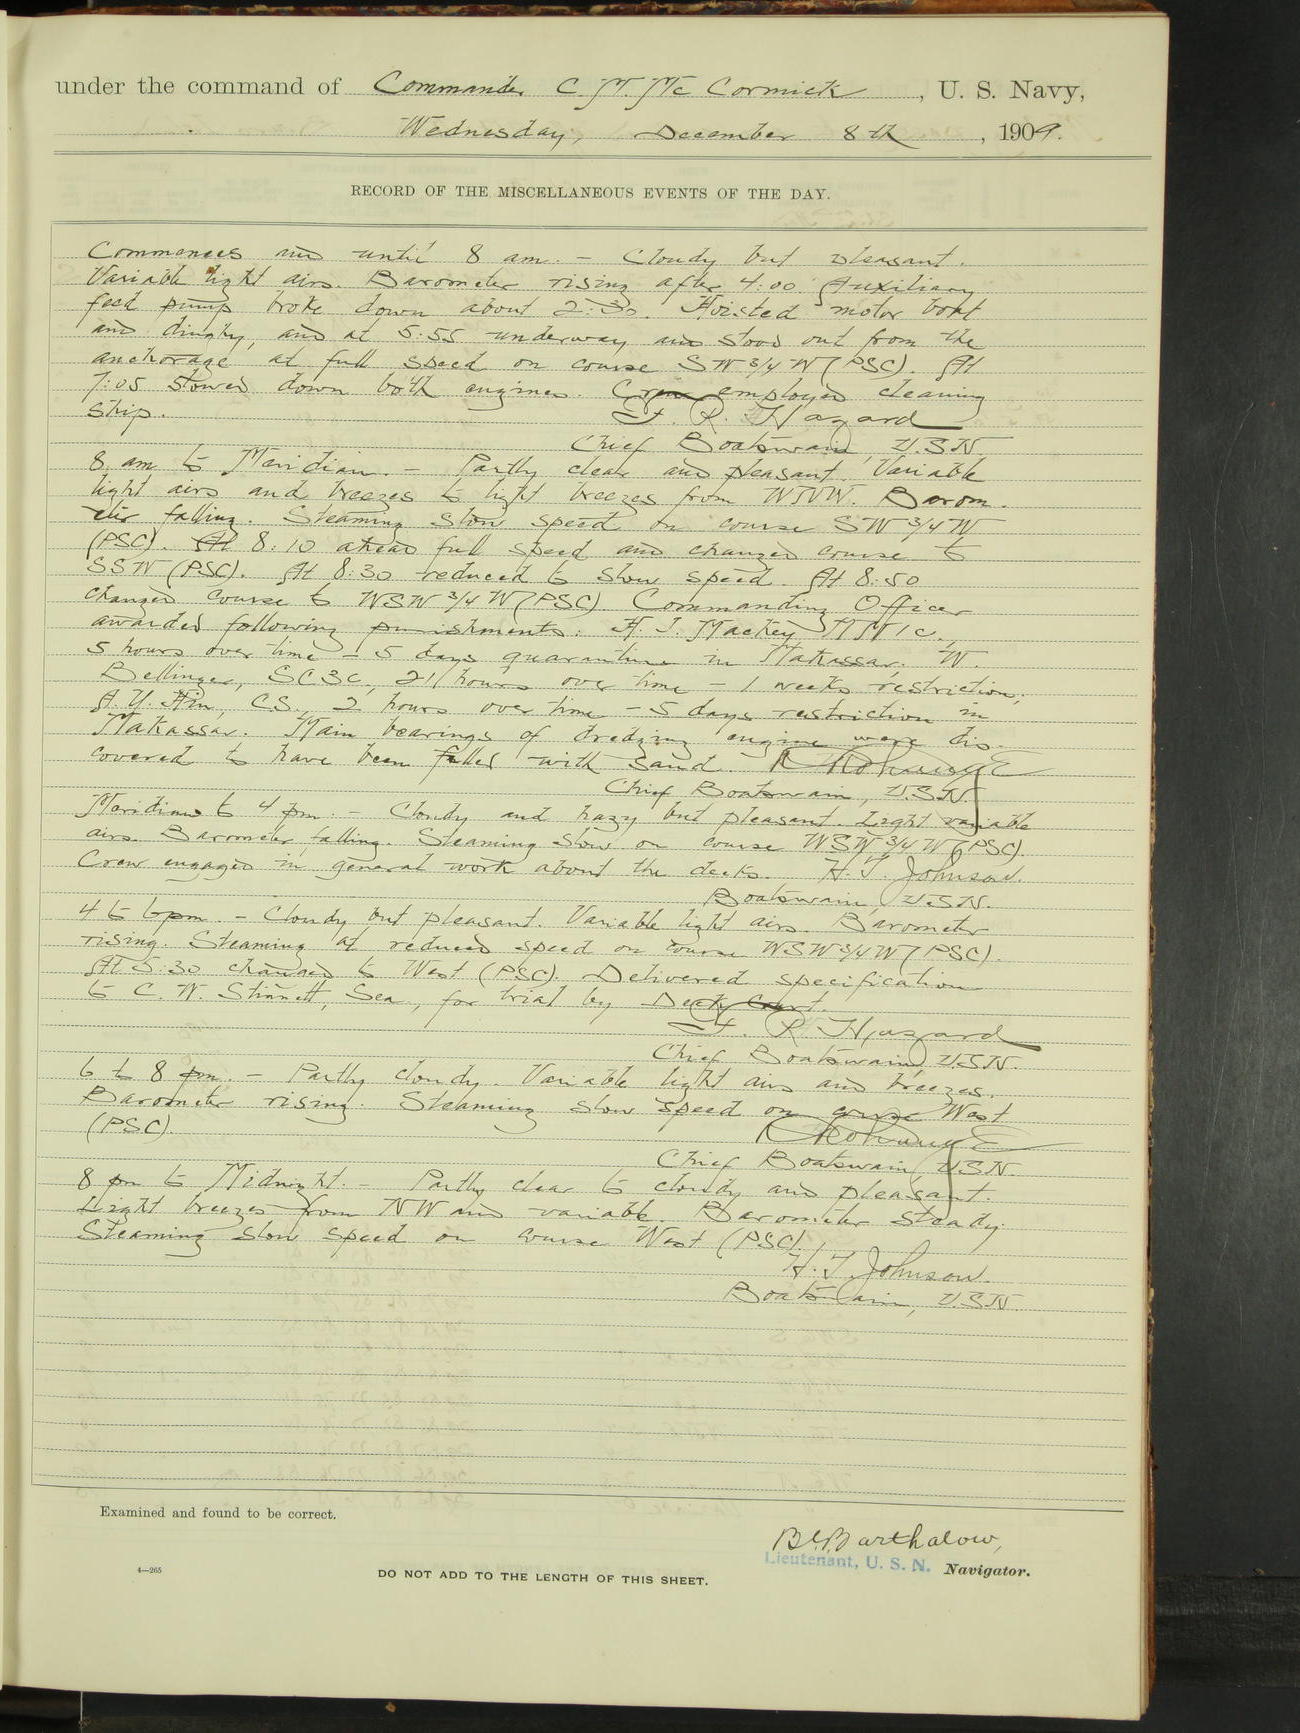 under the command of Commander C. M. Mc Cormick, U. S. Navy,
Wednesday, December 8th, 1909.
RECORD OF THE MISCELLANEOUS EVENTS OF THE DAY.
Commences and until 8 am. - Cloudy but pleasant.
Variable light airs. Barometer rising after 4:00. Auxiliary
feed pump broke down about 2:30. Hoisted motor boat
and dinghy, and at 5:55 underway and stood out from the
anchorage at full speed on course SW 3/4 W (PSC). At
7:05 slowed down both engines. Crew employed cleaning
ship. F. R. Hazard
Chief Boatswain, U.S.N.
8 am to Meridian. - Partly clear and pleasant. Variable
light airs and breezes to light breezes from WNW. Barom-
eter falling. Steaming slow speed on course SW 3/4 W
(PSC). At 8:10 ahead full speed and changed course to
SSW (PSC). At 8:30 reduced to slow speed. At 8:50
changed course to WSW 3/4 W (PSC). Commanding Officer
awarded following punishments: H. J. Mackey MM1c.,
5 hours over time - 5 days quarantine in Makassar; W.
Bellinger, SC3c, 21 hours over time - 1 weeks restriction;
A. Y. Him, C.S., 2 hours over time - 5 days restriction in
Makassar. Main bearings of dredging engine were dis-
covered to have been filled with sand.
Chief Boatswain, U.S.N.
Meridian to 4 pm. - Cloudy and hazy but pleasant. Light variable
airs. Barometer falling. Steaming slow on course WSW 3/4 W (PSC).
Crew engaged in general work about the decks. H. T. Johnson.
Boatswain, U.S.N.
4 to 6 pm. - Cloudy but pleasant. Variable light airs. Barometer
rising. Steaming at reduced speed on course WSW 3/4 W (PSC).
At 5:30 changed to West (PSC). Delivered specification
to C. W. Stinnett, Sea., for trial by Deck Court.
F. R. Hazard
Chief Boatswain, U.S.N.
6 to 8 pm. - Partly cloudy. Variable light airs and breezes.
Barometer rising. Steaming slow speed on course West
(PSC).
Chief Boatswain, U.S.N.
8 pm to Midnight. - Partly clear to cloudy and pleasant.
Light breezes from NW and variable. Barometer steady.
Steaming slow speed on course West (PSC).
H. T. Johnson.
Boatswain, U.S.N.
Examined and found to be correct.
B. B. Barthalow,
Lieutenant, U. S. N. Navigator.
4—265
DO NOT ADD TO THE LENGTH OF THIS SHEET.